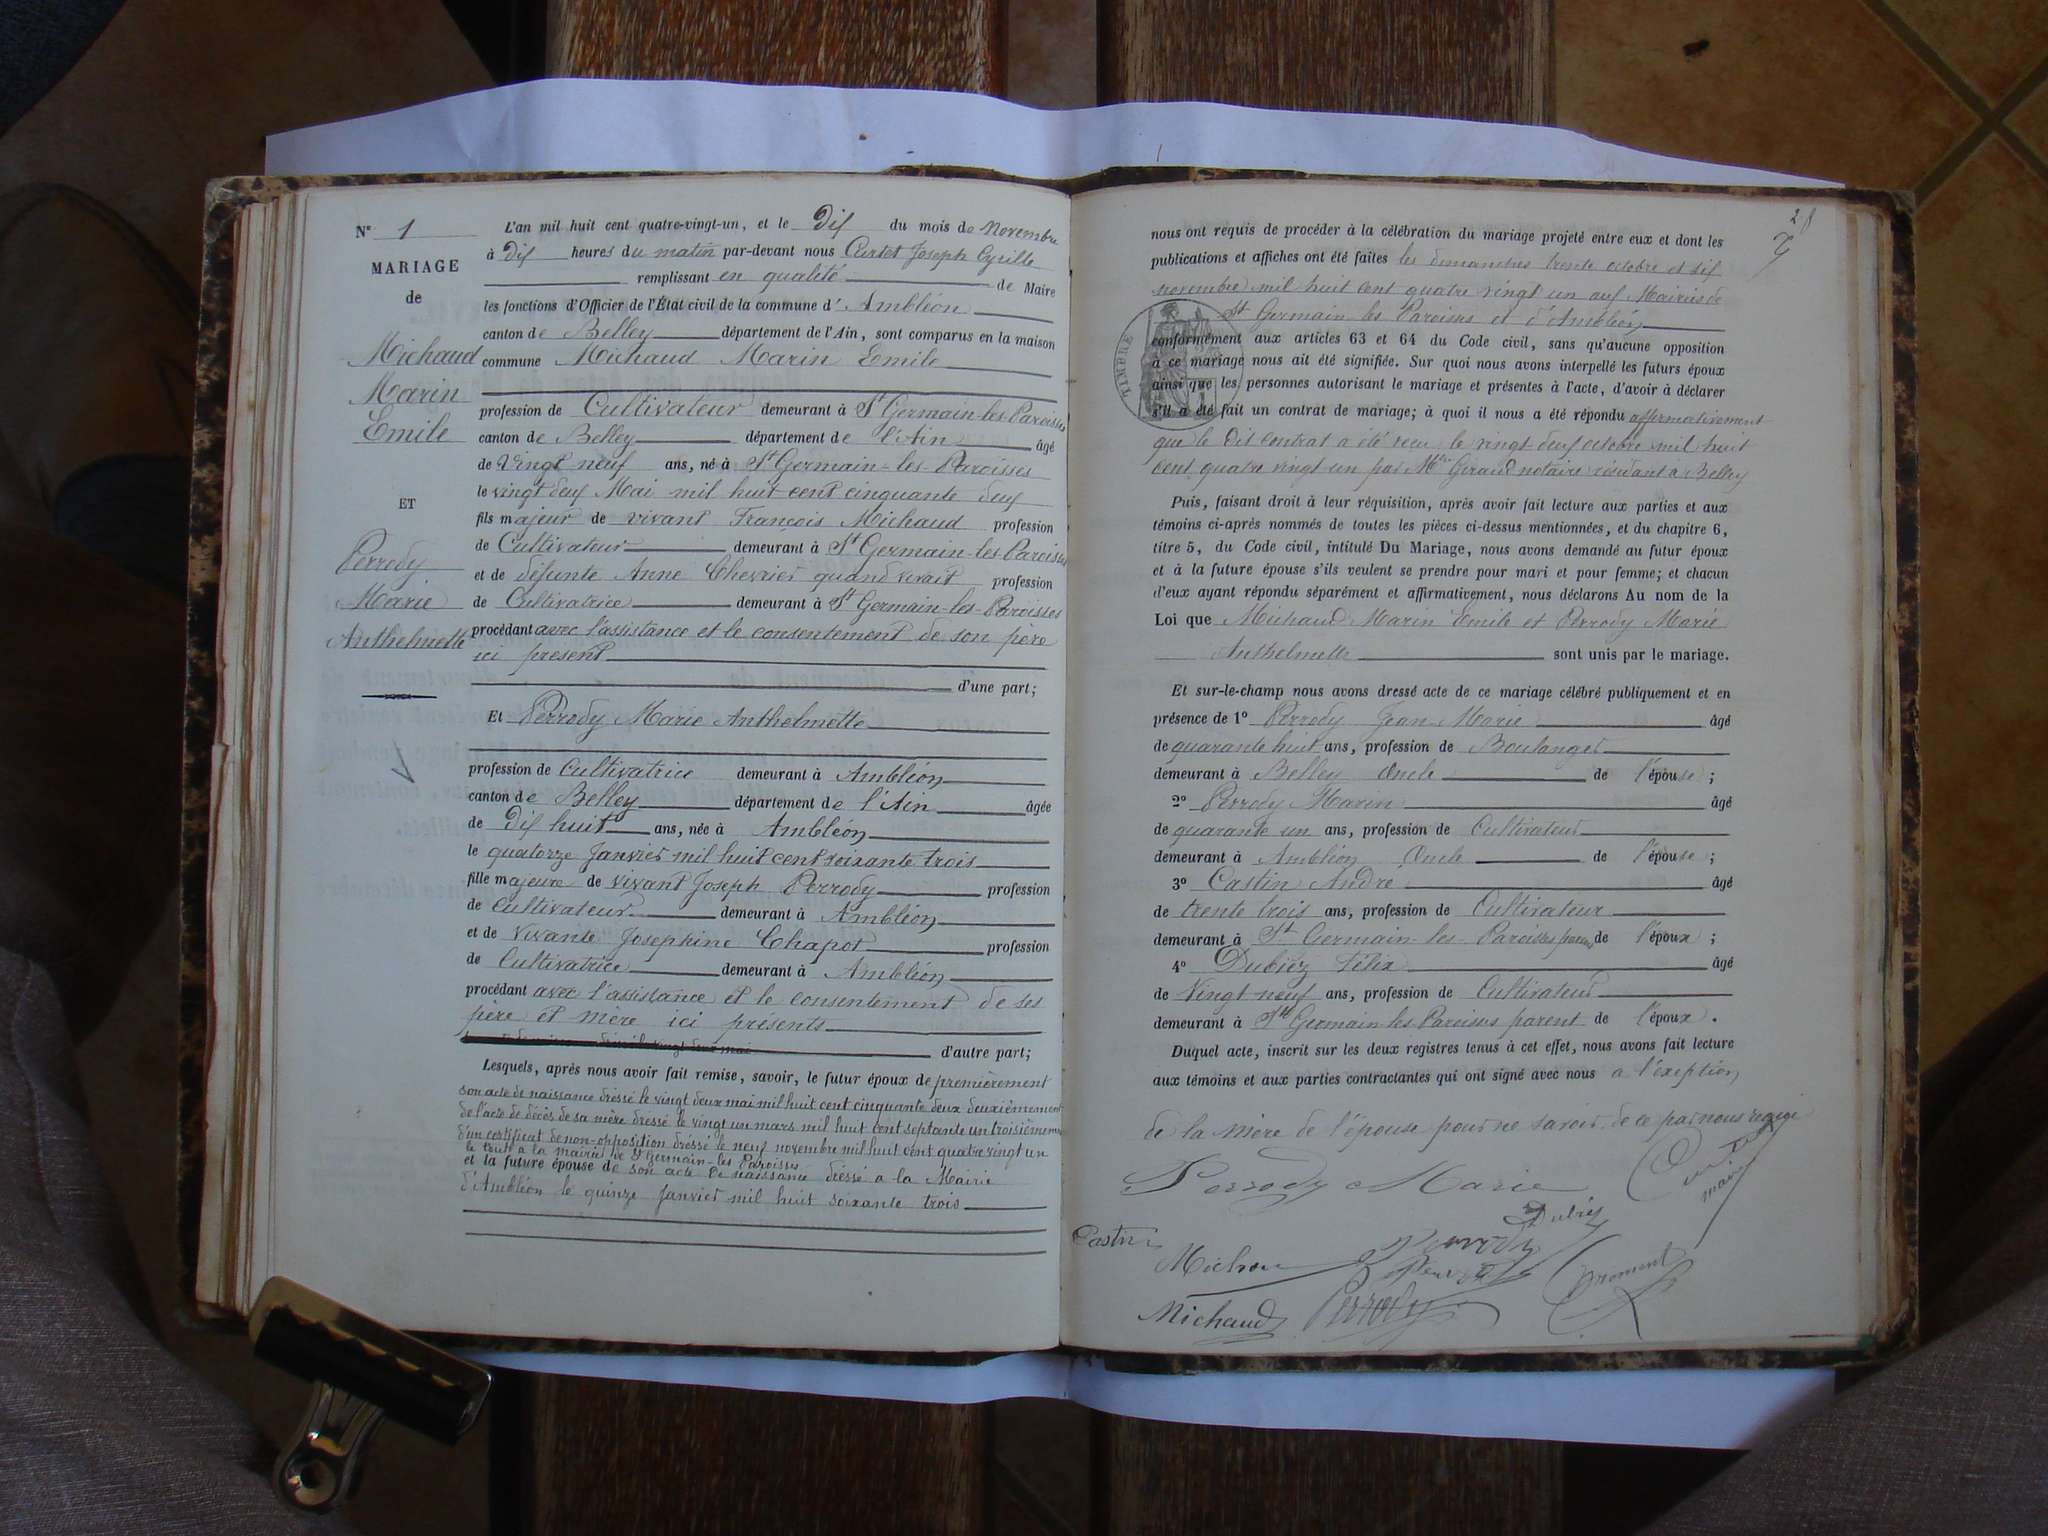 N° 1
MARIAGE
de
Michaud
Marin
Emile
ET
Perrody
Marie
Anthelmette
L'an mil huit cent quatre-vingt-un, et le Dix du mois de Novembre
à Dix heures du matin par-devant nous Curtet Joseph Cyrille
remplissant en qualité de Maire
les fonctions d'Officier de l'État civil de la commune d' Ambléon
canton de Belley département de l'Ain, sont comparus en la maison
commune Michaud Marin Emile
profession de Cultivateur demeurant à St Germain-les-Paroisses
canton de Belley département de l'Ain âgé
de Vingt neuf ans, né à St Germain-les-Paroisses
le vingt deux Mai mil huit cent cinquante deux
fils majeur de vivant François Michaud profession
de Cultivateur demeurant à St Germain-les-Paroisses
et de défunte Anne Chevrier quand vivait profession
de Cultivatrice demeurant à St Germain-les-Paroisses
procédant avec l'assistance et le consentement de son père
ici présent
d'une part;
Et Perrody Marie Anthelmette
profession de Cultivatrice demeurant à Ambléon
canton de Belley département de l'Ain âgée
de Dix huit ans, née à Ambléon
le quatorze Janvier mil huit cent soixante trois
fille majeure de vivant Joseph Perrody profession
de Cultivateur demeurant à Ambléon
et de vivante Josephine Chapot profession
de Cultivatrice demeurant à Ambléon
procédant avec l'assistance et le consentement de ses
père et mère ici présents
d'autre part;
Lesquels, après nous avoir fait remise, savoir, le futur époux de premièrement
son acte de naissance dressé le vingt deux mai mil huit cent cinquante deux deuxièmement
de l'acte de décès de sa mère dressé le vingt un mars mil huit cent septante un troisièmement
d'un certificat de non-opposition dressé le neuf novembre mil huit cent quatre vingt un
le tout à la mairie de St Germain-les Paroisses
et la future épouse de son acte de naissance dressé a la Mairie
d'Ambléon le quinze Janvier mil huit soixante trois
28
nous ont requis de procéder à la célébration du mariage projeté entre eux et dont les
publications et affiches ont été faites les dimanches trente octobre et six
novembre mil huit cent quatre vingt un aux Mairies de
St Germain les Paroisses et d'Ambléon
TIMBRE
conformément aux articles 63 et 64 du Code civil, sans qu'aucune opposition
à ce mariage nous ait été signifiée. Sur quoi nous avons interpellé les futurs époux
ainsi que les personnes autorisant le mariage et présentes à l'acte, d'avoir à déclarer
s'il a été fait un contrat de mariage; à quoi il nous a été répondu affirmativement
que le dit contrat a été reçu le vingt deux octobre mil huit
cent quatre vingt un par Giraud notaire résidant à Belley
Puis, faisant droit à leur réquisition, après avoir fait lecture aux parties et aux
témoins ci-après nommés de toutes les pièces ci-dessus mentionnées, et du chapitre 6,
titre 5, du Code civil, intitulé Du Mariage, nous avons demandé au futur époux
et à la future épouse s'ils veulent se prendre pour mari et pour femme; et chacun
d'eux ayant répondu séparément et affirmativement, nous déclarons Au nom de la
Loi que Michaud Marin Emile et Perrody Marie
Anthelmette sont unis par le mariage.
Et sur-le-champ nous avons dressé acte de ce mariage célébré publiquement et en
présence de 1° Perrody Jean Marie âgé
de quarante huit ans, profession de Boulanger
demeurant à Belley Oncle de l'épouse;
2° Perrody Marin âgé
de quarante un ans, profession de Cultivateur
demeurant à Ambléon Oncle de l'épouse;
3° Castin André âgé
de trente trois ans, profession de Cultivateur
demeurant à St Germain-les-Paroisses parent de l'époux;
4° Dubiez Félix âgé
de Vingt neuf ans, profession de Cultivateur
demeurant à St Germain-les-Paroisses parent de l'époux.
Duquel acte, inscrit sur les deux registres tenus à cet effet, nous avons fait lecture
aux témoins et aux parties contractantes qui ont signé avec nous a l'exeption
de la mère de l'épouse pour ne savoir de ce par nous requise
Perrody Marie
maire
Castin
Dubiez
Perrody
Michaud
Perrody